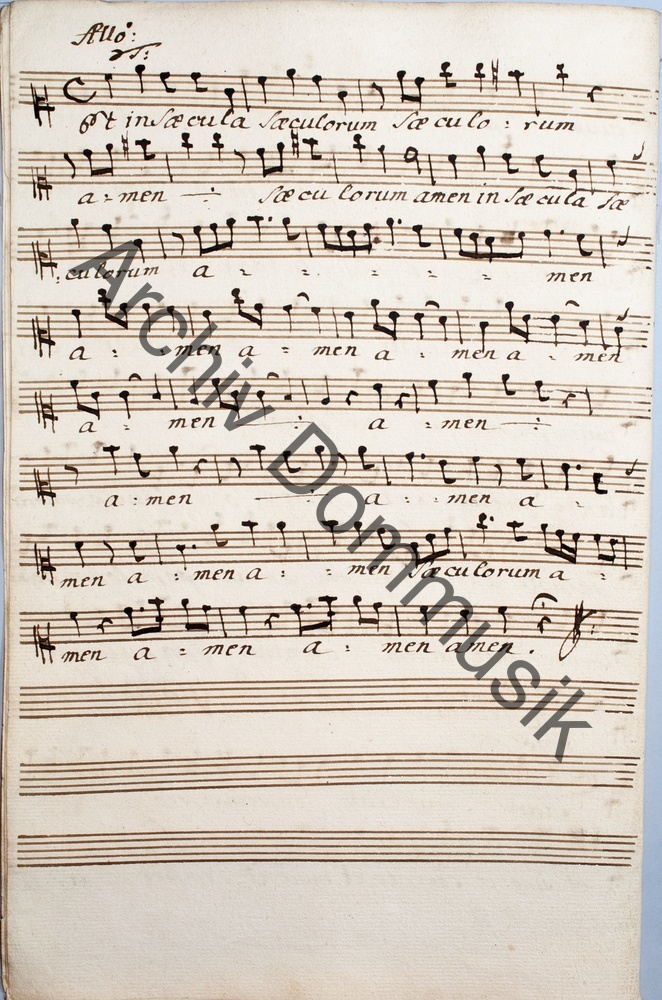 All:o
T:
Et in Sæcula Sæculorum Sæculo : rum
a = men Sæculorum amen in Sæcula Sæ
: culorum a = = = = = men
a = : men a = men a : men a = men
a : men : a = men :
a : men a : men a =
men a = men a : = men Sæculorum a =
men a = men a : men amen .
Archiv Dommusik